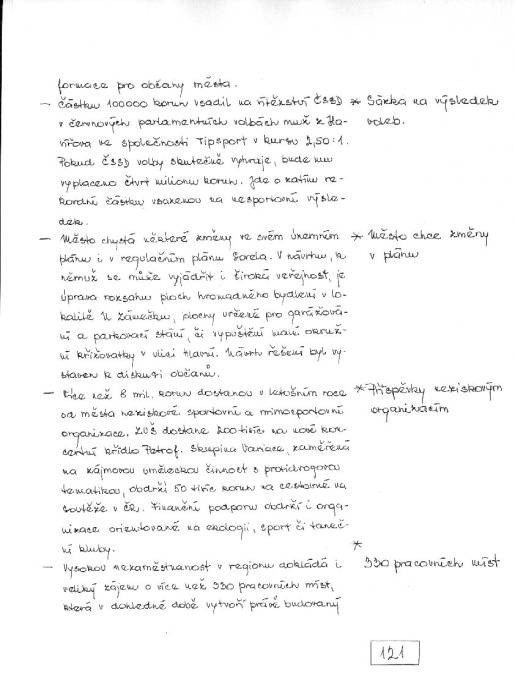 formace pro občany města.
– Částku 100000 korun vsadil na vítězství ČSSD
v červnových parlamentních volbách muž z Ha-
vířova ve společnosti Tipsport v kursu 2,50:1.
Pokud ČSSD volby skutečně vyhraje, bude mu
vyplaceno čtvrt milionu korun. Jde o zatím re-
kordní částku vsazenou na nesportovní výsle-
dek.
* Sázka na výsledek
voleb.
– Město chystá některé změny ve svém územním
plánu i v regulačním plánu Sorela. V návrhu, k
němuž se může vyjádřit i široká veřejnost, je
úprava rozsahu ploch hromadného bydlení v lo-
kalitě U Zámečku, plochy určené pro garážová-
ní a parkovací stání, či vypuštění malé okruž-
ní křižovatky v ulici Hlavní. Návrh řešení byl vy-
staven k diskuzi občanů.
* Město chce změny
v plánu
– Více než 8 mil. korun dostanou v letošním roce
od města neziskové sportovní a mimosportovní
organizace. ZUŠ dostane 200 tisíc na nové kon-
certní křídlo Petrof. Skupina Variace, zaměřená
na zájmovou uměleckou činnost s protidrogovou
tematikou, obdrží 50 tisíc korun na cestovné na
soutěže v ČR. Finanční podporu obdrží i orga-
nizace orientované na ekologii, sport či taneč-
ní kluby.
* Příspěvky neziskovým
organizacím
– Vysokou nezaměstnanost v regionu dokládá i
veliký zájem o více než 330 pracovních míst,
která v dohledné době vytvoří právě budovaný
*
330 pracovních míst
121